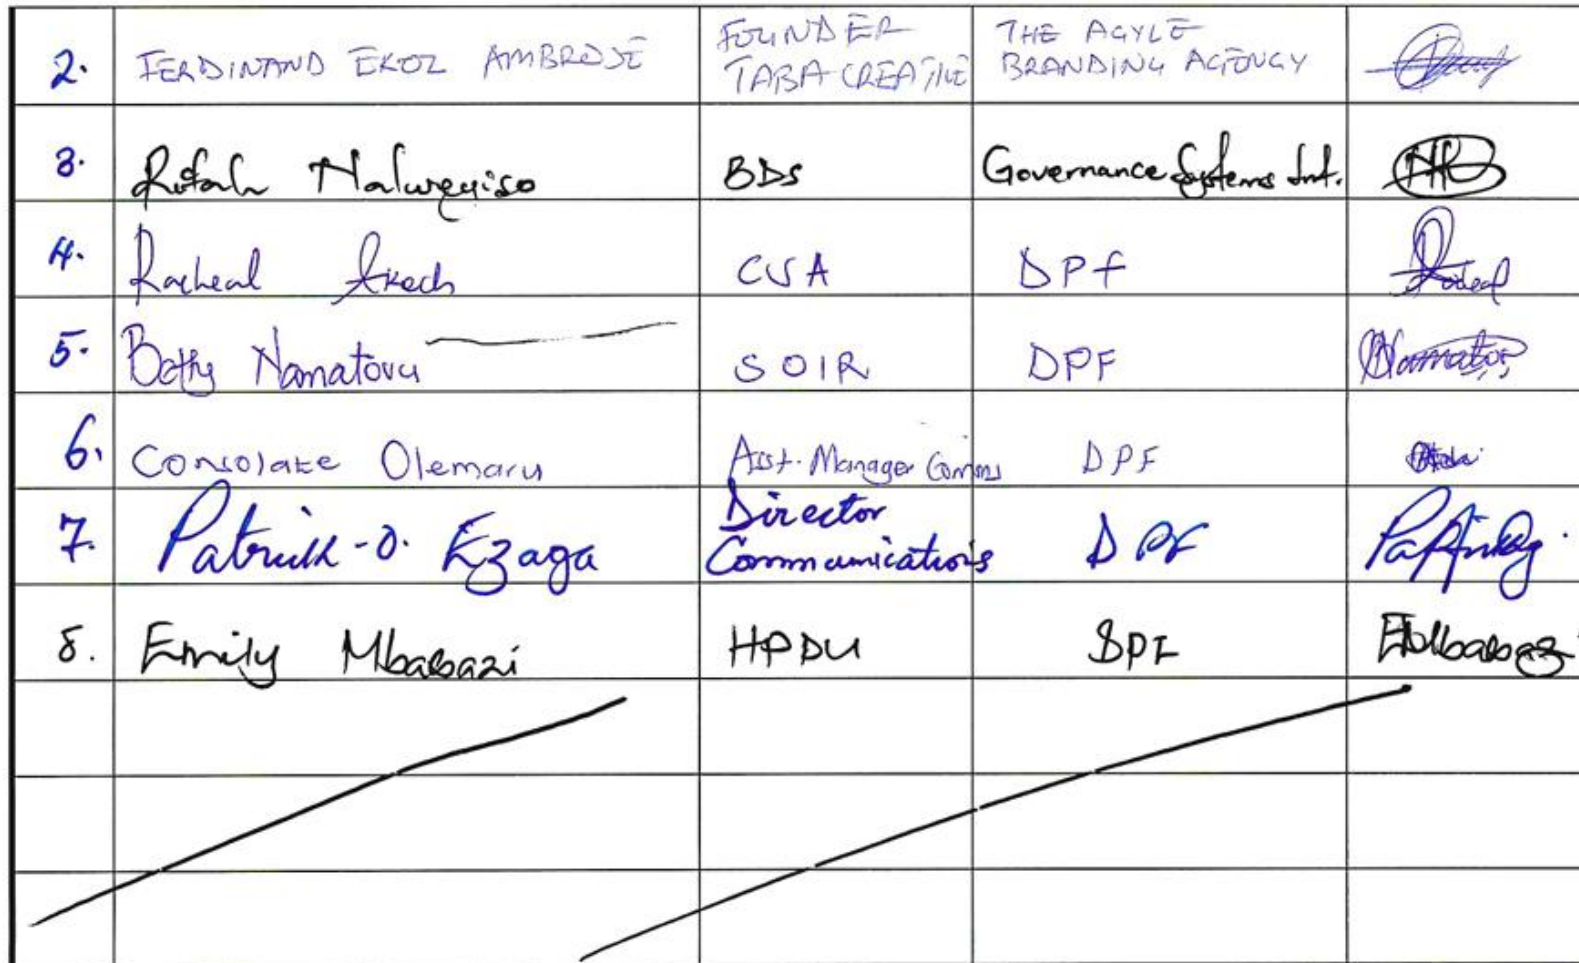 2. FERDINAND EKOL AMBROSE FOUNDER TABA CREATIVE THE AGYLE BRANDING AGENCY
3. Ritah Nalwegiso BDs Governance Systems Int.
4. Racheal Akech CSA DPf
5. Betty Namatovu SOIR DPF
6. Consolate Olemaru Asst. Manager Comms DPF
7. Patrick-O. Ezaga Director Communications DPF
8. Emily Mbabazi HPDU DPF